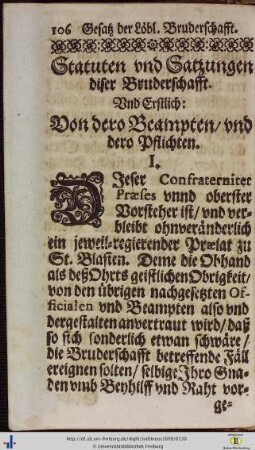 106 Gesatz der Löbl. Bruderschafft.
Statuten vnd Satzungen
diser Bruderschafft.
Vnd Erstlich:
Von dero Beampten/ vnd
dero Pflichten.
I.
DIeser Confraternitet
Præses vnnd oberster
Vorsteher ist/ vnd ver-
bleibt ohnveränderlich
ein jeweil-regierender Prælat zu
St. Blasien. Deme die Obhand
als deß Ohrts geistlichen Obrigkeit/
von den übrigen nachgesetzten Of-
ficialen vnd Beampten also vnd
dergestalten anvertraut wird/ daß
so sich sonderlich etwan schwäre/
die Bruderschafft betreffende Fäll
ereignen solten/ selbige Ihro Gna-
den vmb Beyhilff vnd Raht vor-
ge-
© Universitätsbibliothek Freiburg